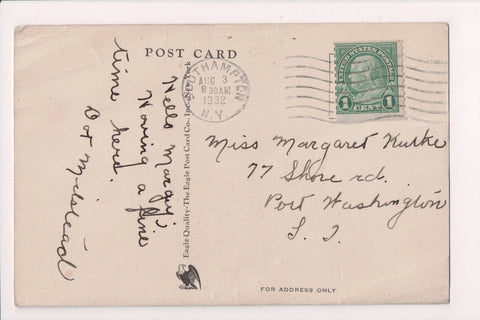 POST CARD
Hello Margy;
Having a fine
time here.
Dot Milstead
Eagle Quality-The Eagle Post Card Co., Inc. New York
SOUTHAMPTON
AUG 3
8 30 AM
1932
N.Y.
UNITED STATES POSTAGE
1 CENT 1
Miss Margaret Kurke
77 Shore rd.
Port Washington
L. I.
FOR ADDRESS ONLY